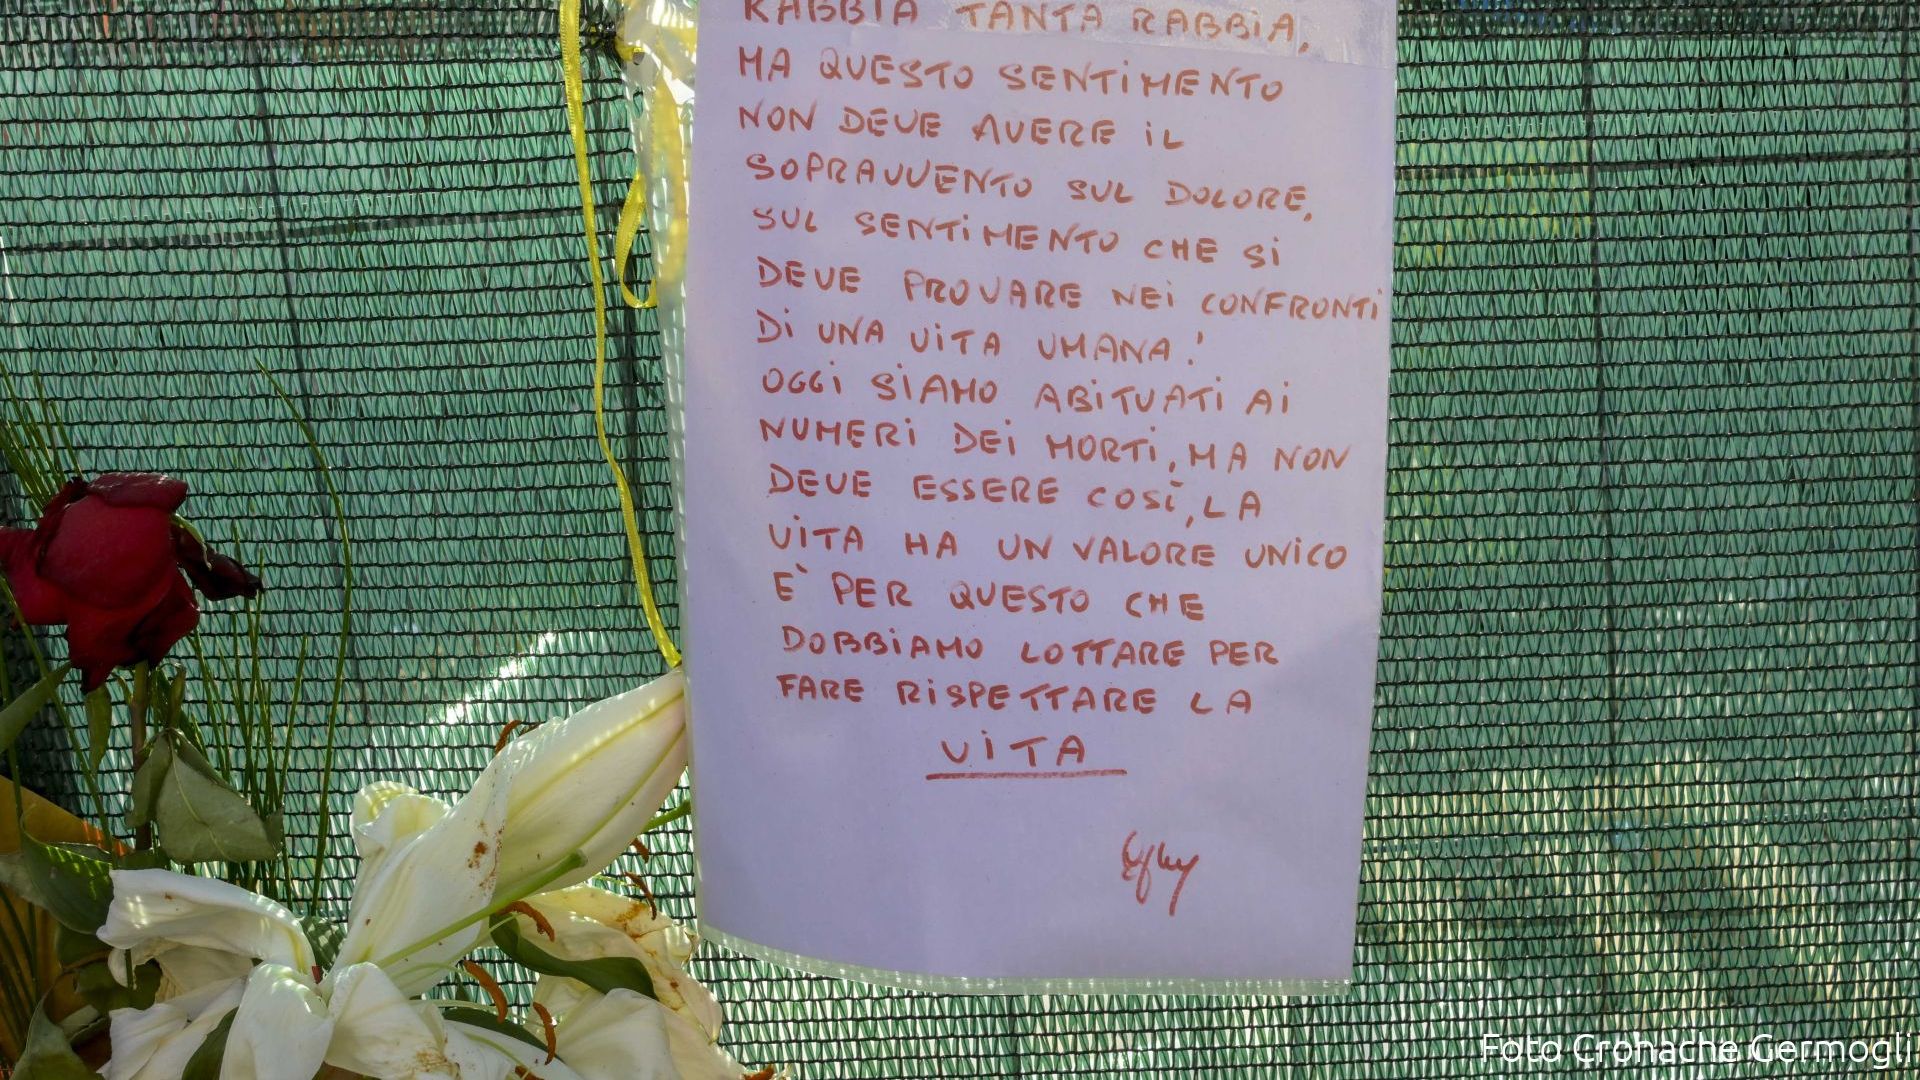 RABBIA TANTA RABBIA,
MA QUESTO SENTIMENTO
NON DEVE AVERE IL
SOPRAVVENTO SUL DOLORE,
SUL SENTIMENTO CHE SI
DEVE PROVARE NEI CONFRONTI
DI UNA VITA UMANA!
OGGI SIAMO ABITUATI AI
NUMERI DEI MORTI, MA NON
DEVE ESSERE COSÌ, LA
VITA HA UN VALORE UNICO
E' PER QUESTO CHE
DOBBIAMO LOTTARE PER
FARE RISPETTARE LA
VITA
Foto Cronache Germogli